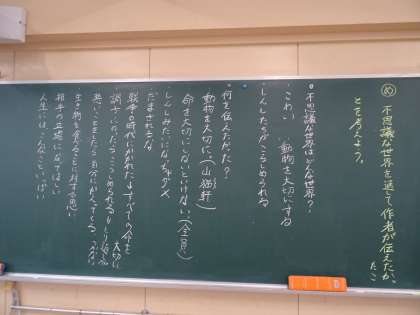 め 不思議な世界を通して作者が伝えたかったこ
とを考えよう。
・不思議な世界はどんな世界？
・こわい ・動物を大切にする
・しんしたちがこらしめられる
・何を伝えたかった？
動物を大切に（山猫軒）
命を大切にしないといけない（全員）
しんしみたいになっちゃダメ
だまされるな
戦争の時代にかかれた→すべての命を大切に
調子にのったらこらしめられる
悪いことをしたら自分にかえってくる
生き物を食べることに対する思い
相手の立場になってほしい
人生にはへんなこといっぱい